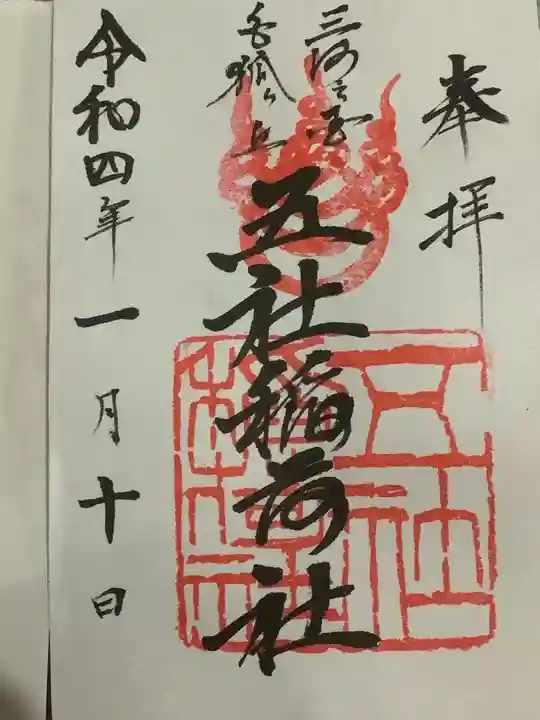 奉拝
三河之国
壱狐ヶ丘
五社稲荷社
令和四年一月十日